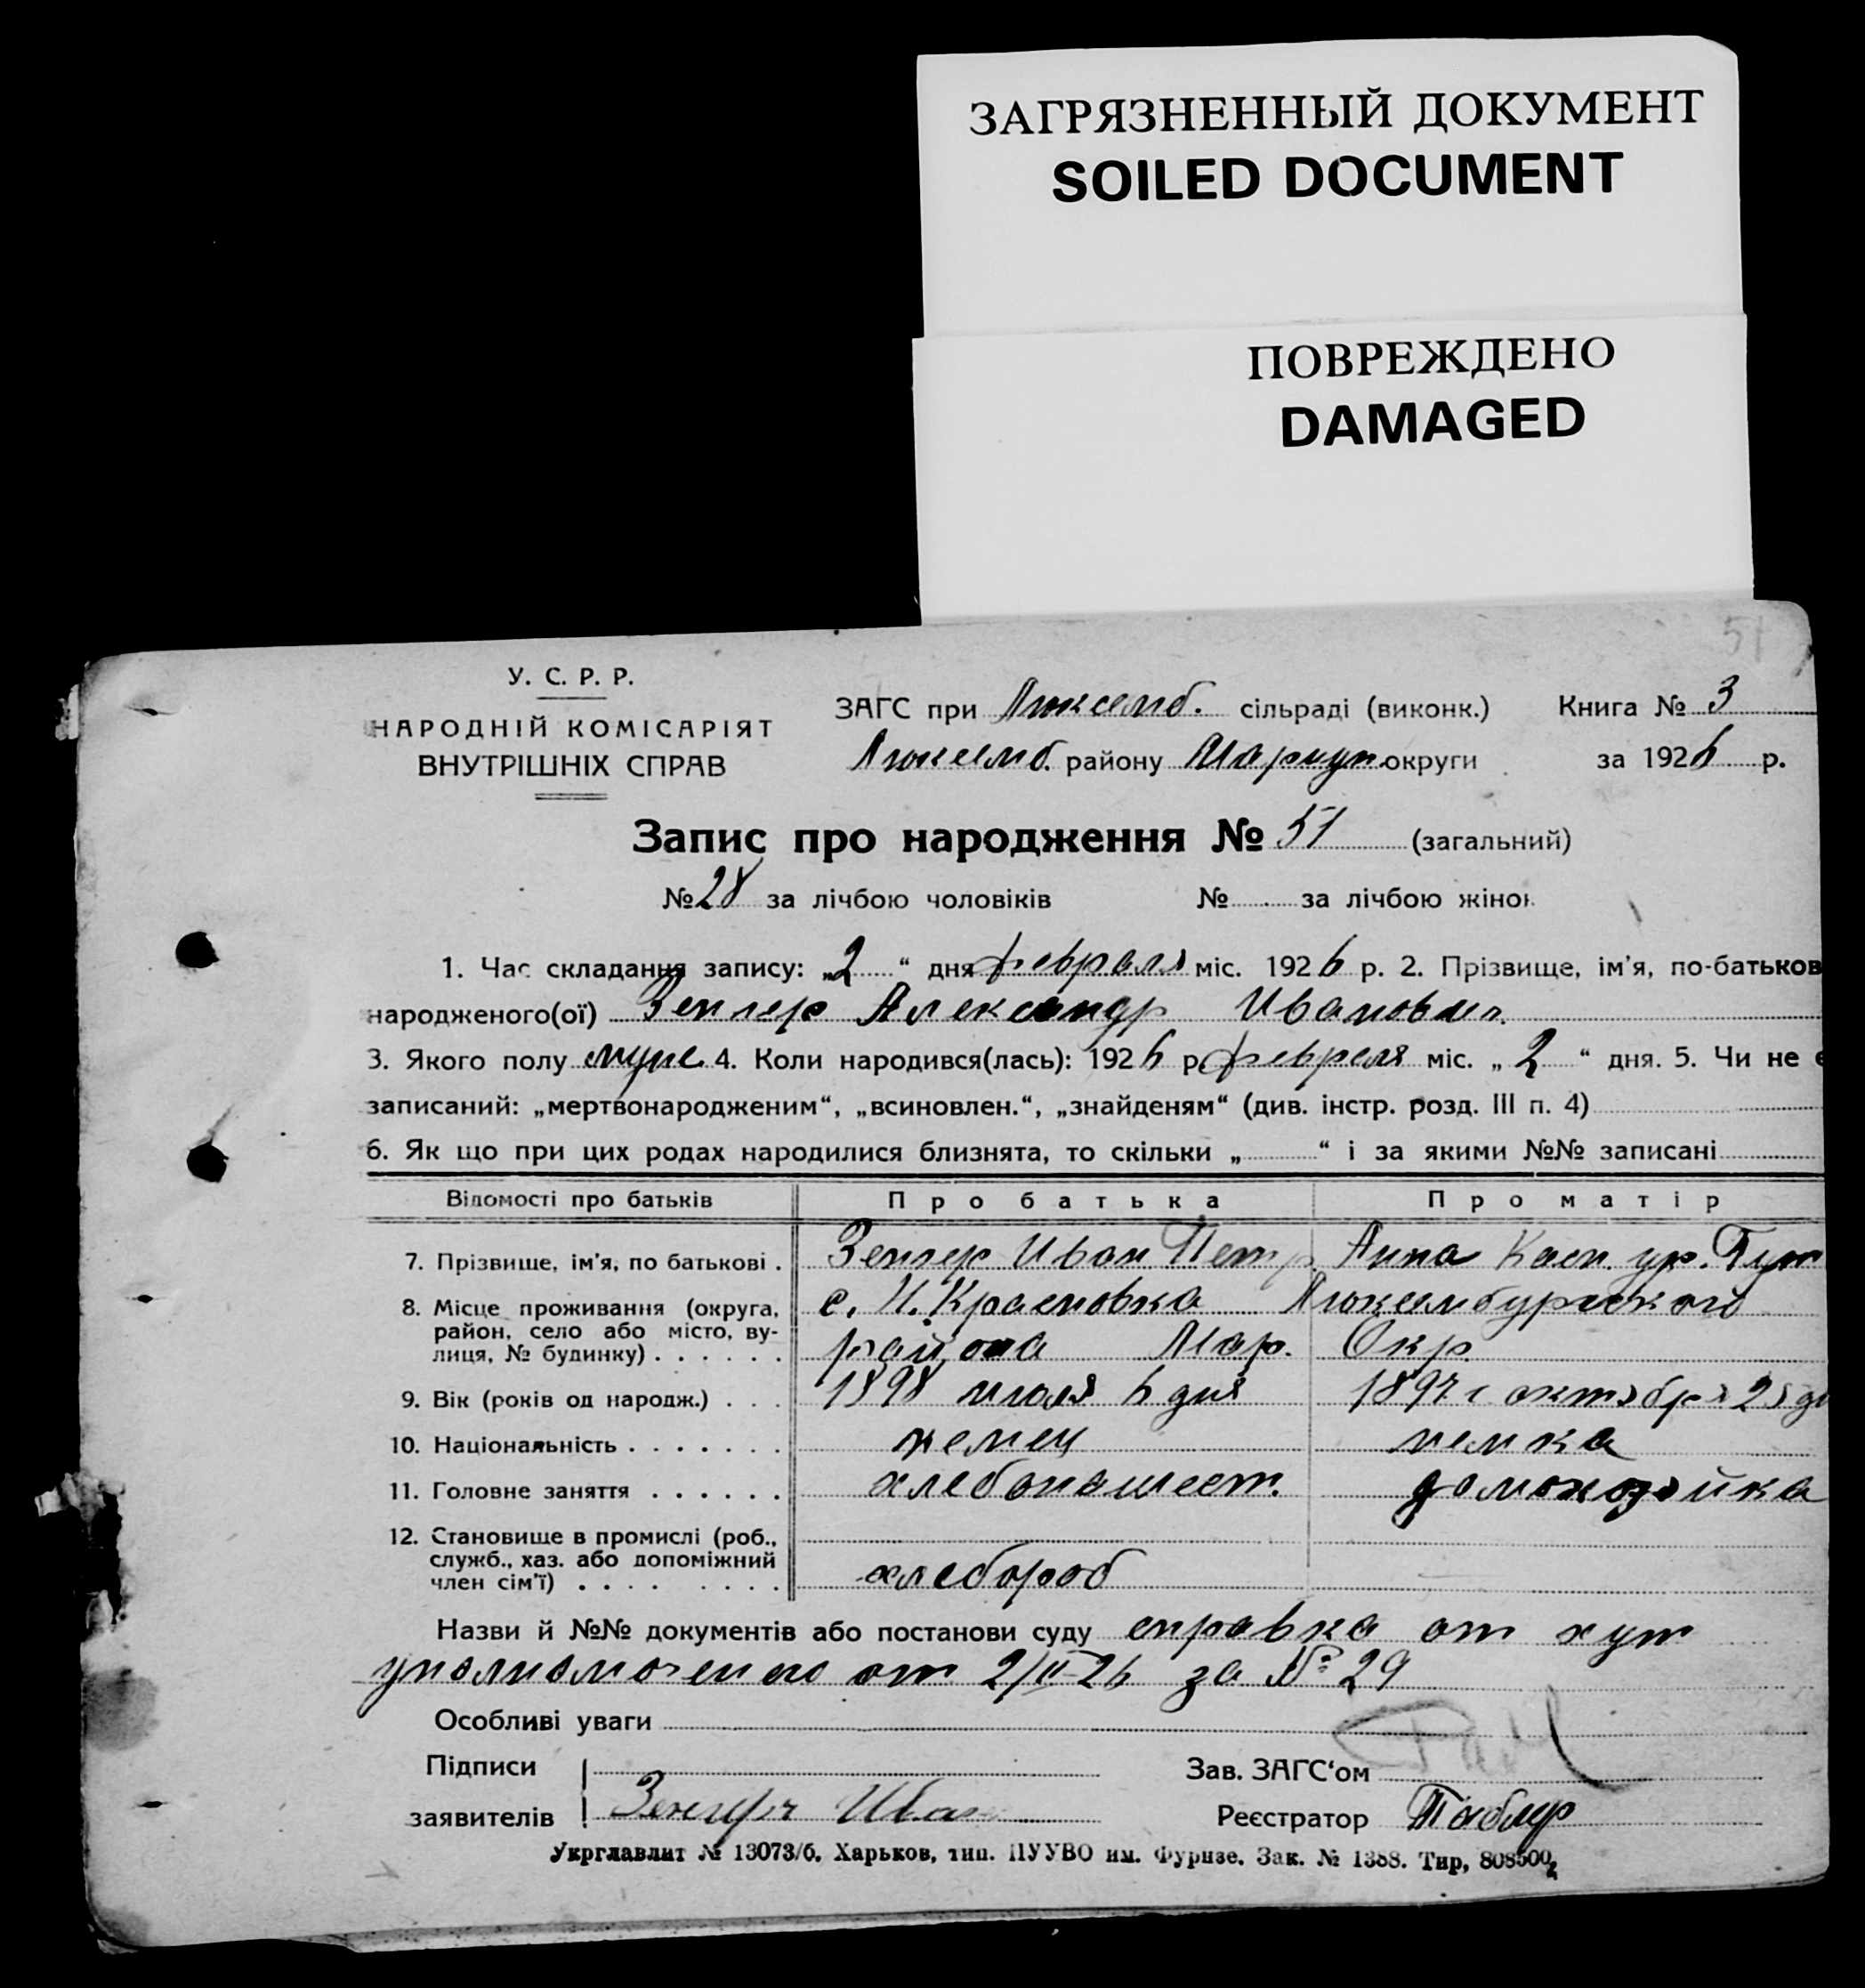 ЗАГРЯЗНЕННЫЙ ДОКУМЕНТ
SOILED DOCUMENT
ПОВРЕЖДЕНО
DAMAGED
51
У. С. Р. Р.
НАРОДНІЙ КОМІСАРІЯТ
ВНУТРІШНІХ СПРАВ
ЗАГС при Люксемб. сільраді (виконк.) Книга № 3
Люксемб. району Мариуп. округи за 1926 р.
Запис про народження № 51 (загальний)
№ 28 за лічбою чоловіків № за лічбою жінок
1. Час складання запису: „2“ дня февраля міс. 1926 р. 2. Прізвище, ім'я, по-батьков
народженого(ої) Зенгер Александр Иванович
3. Якого полу муж. 4. Коли народився(лась): 1926 р. февраля міс. „2“ дня. 5. Чи не є
записаний: „мертвонародженим“, „всиновлен.“, „знайденям“ (див. інстр. розд. III п. 4)
6. Як що при цих родах народилися близнята, то скільки „ “ і за якими №№ записані
Відомості про батьків Про батька Про матір
7. Прізвише, ім'я, по батькові . Зенгер Иван Петр Анна Касп. ур.
8. Місце проживання (округа, район, село або місто, ву-
лиця, № будинку) . . . . . . с. Н. Красновка Люксембургского
района Мар. Окр.
9. Вік (років од народж.) . . . 1898 июля 6 дня 1897 г октября 25 дн
10. Національність . . . . . . . немец немка
11. Головне заняття . . . . . . хлебопашест. домохозяйка
12. Становище в промислі (роб.,
служб., хаз. або допоміжний
член сім'ї) . . . . . . . . хлебороб
Назви й №№ документів або постанови суду справка от хут
уполномоченого от 2/II-26 за № 29
Особливі уваги
Підписи Зав. ЗАГС'ом
заявителів Зенгер Иван Реєстратор
Укрглавлит № 13073/б. Харьков, тип. ПУУВО им. Фрунзе. Зак. № 1388. Тир, 808500